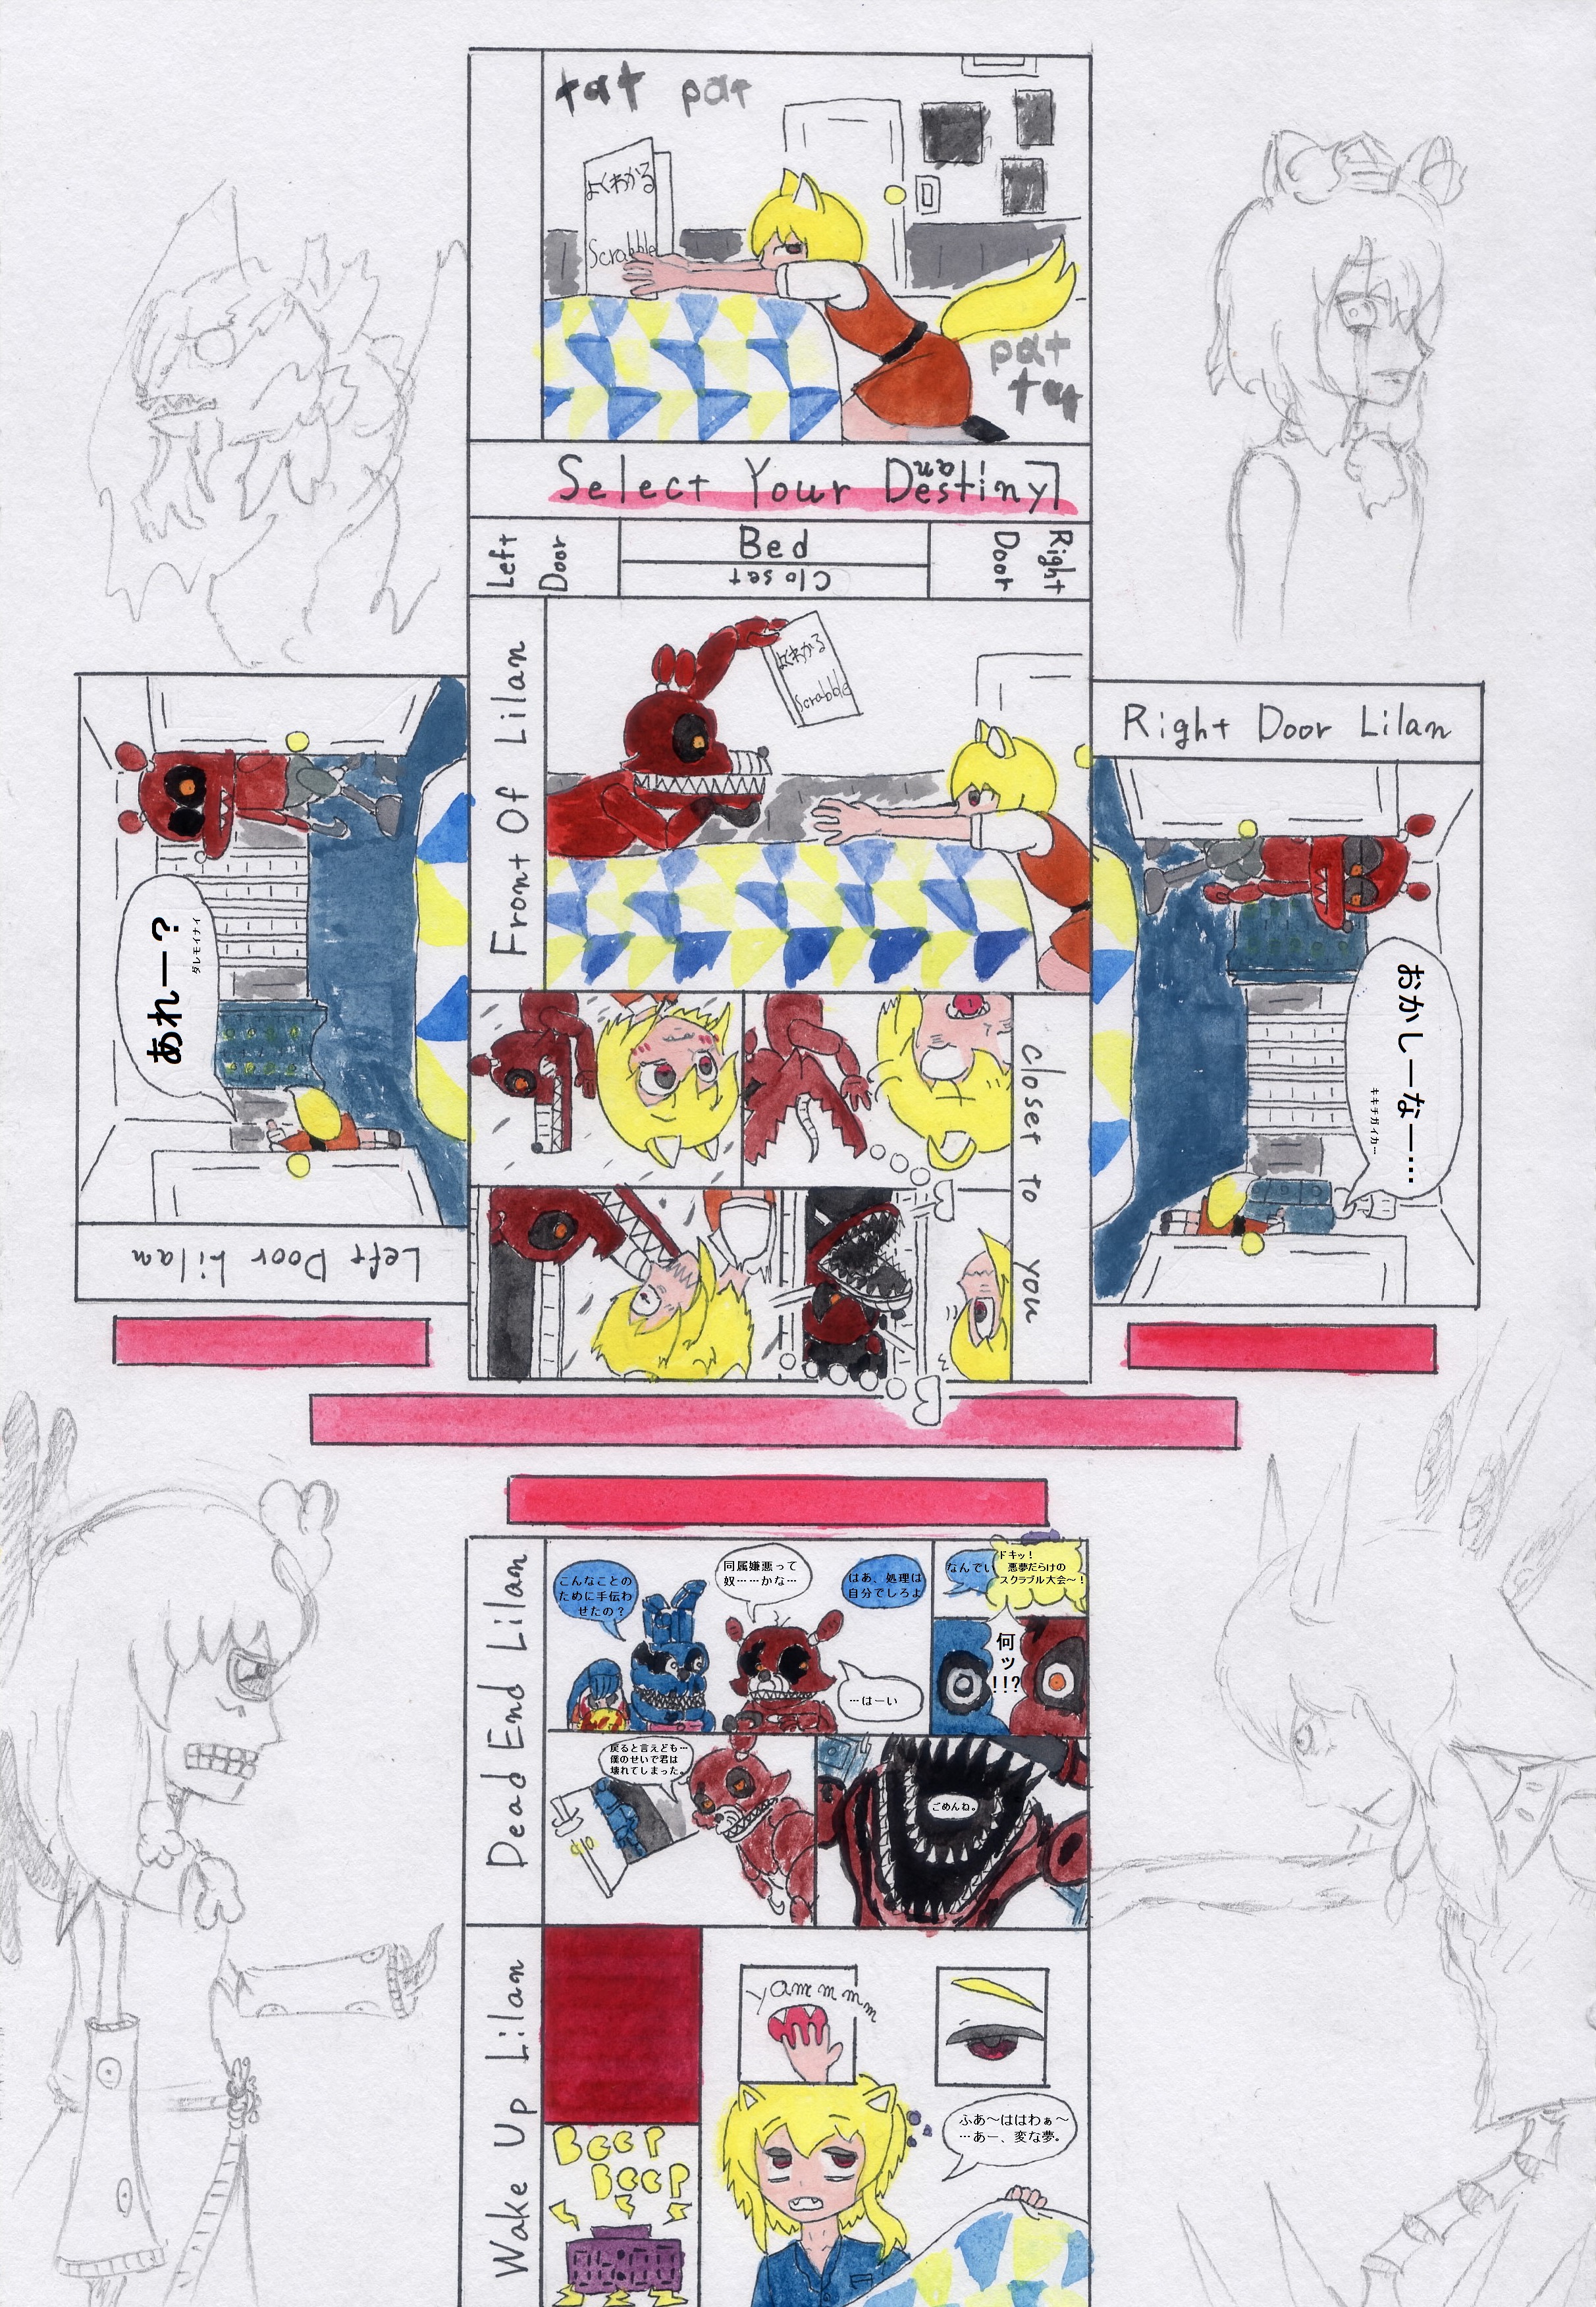 tat pat
よくわかる
Scrabble
pat
tat
Select Your Destiny
Left
Door
Bed
Closet
Right
Door
Front Of Lilan
よくわかる
Scrabble
Right Door Lilan
あれー？
ダレモイナイ
おかしーなー…
キキチガイカ…
Left Door Lilan
Closet to you
Dead End Lilan
こんなことの
ために手伝わ
せたの？
同属嫌悪って
奴……かな…
はあ、処理は
自分でしろよ
…はーい
なんでい
ドキッ！
悪夢だらけの
スクラブル大会～！
何ッ!!?
戻ると言えども…
僕のせいで君は
壊れてしまった。
ごめんね。
Wake Up Lilan
yammmm
BEEP
BEEP
ふあ～ははわぁ～
…あー、変な夢。